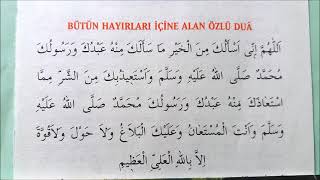 BÜTÜN HAYIRLARI İÇİNE ALAN ÖZLÜ DUÂ
اَللّٰهُمَّ اِنّٖى اَسْاَلُكَ مِنَ الْخَيْرِ مَا سَاَلَكَ مِنْهُ عَبْدُكَ وَرَسُولُكَ
مُحَمَّدٌ صَلَّى اللّٰهُ عَلَيْهِ وَسَلَّمَ وَاَسْتَعِيذُبِكَ مِنَ الشَّرِّ مِمَّا
اسْتَعَاذَكَ مِنْهُ عَبْدُكَ وَرَسُولُكَ مُحَمَّدٌ صَلَّى اللّٰهُ عَلَيْهِ
وَسَلَّمَ وَاَنْتَ الْمُسْتَعَانُ وَعَلَيْكَ الْبَلَاغُ وَلَا حَوْلَ وَلَاقُوَّةَ
اِلَّا بِاللّٰهِ الْعَلِىِّ الْعَظِيمِ